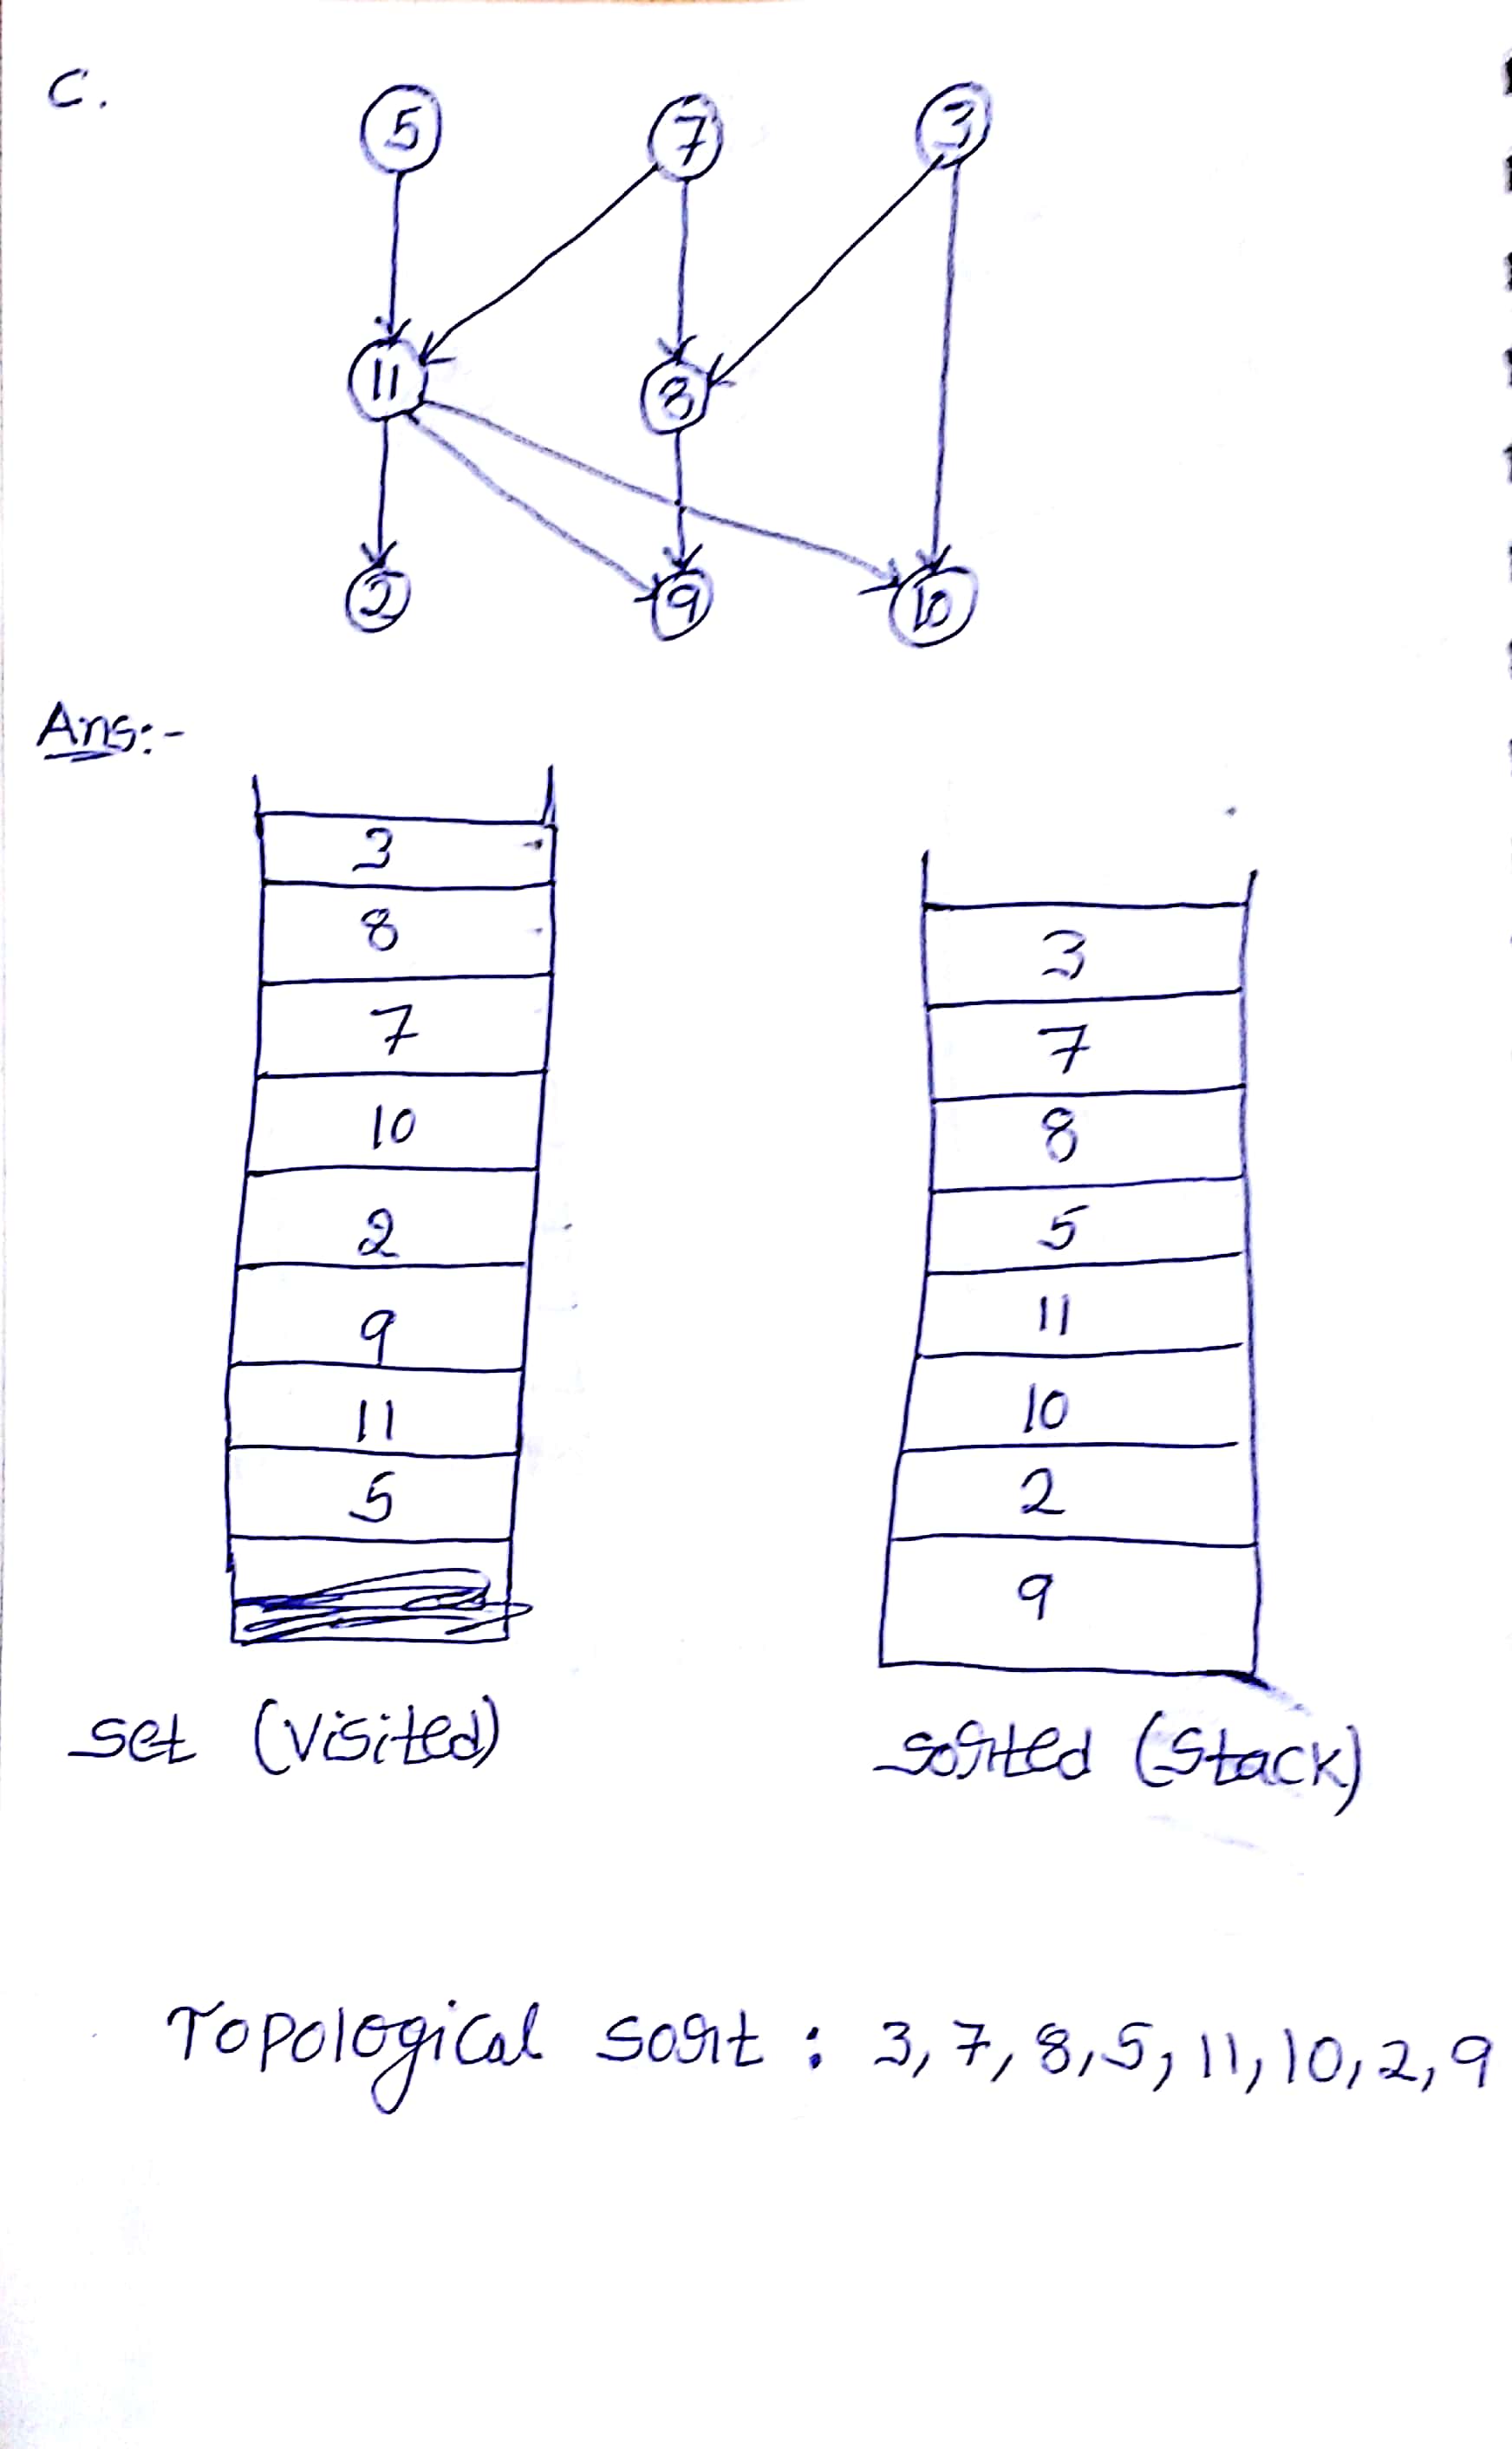 C.
5 7 3
11 8
2 9 10
Ans:-
3
8
7
10
2
9
11
5
set (visited)
3
7
8
5
11
10
2
9
sorted (stack)
Topological sort : 3, 7, 8, 5, 11, 10, 2, 9